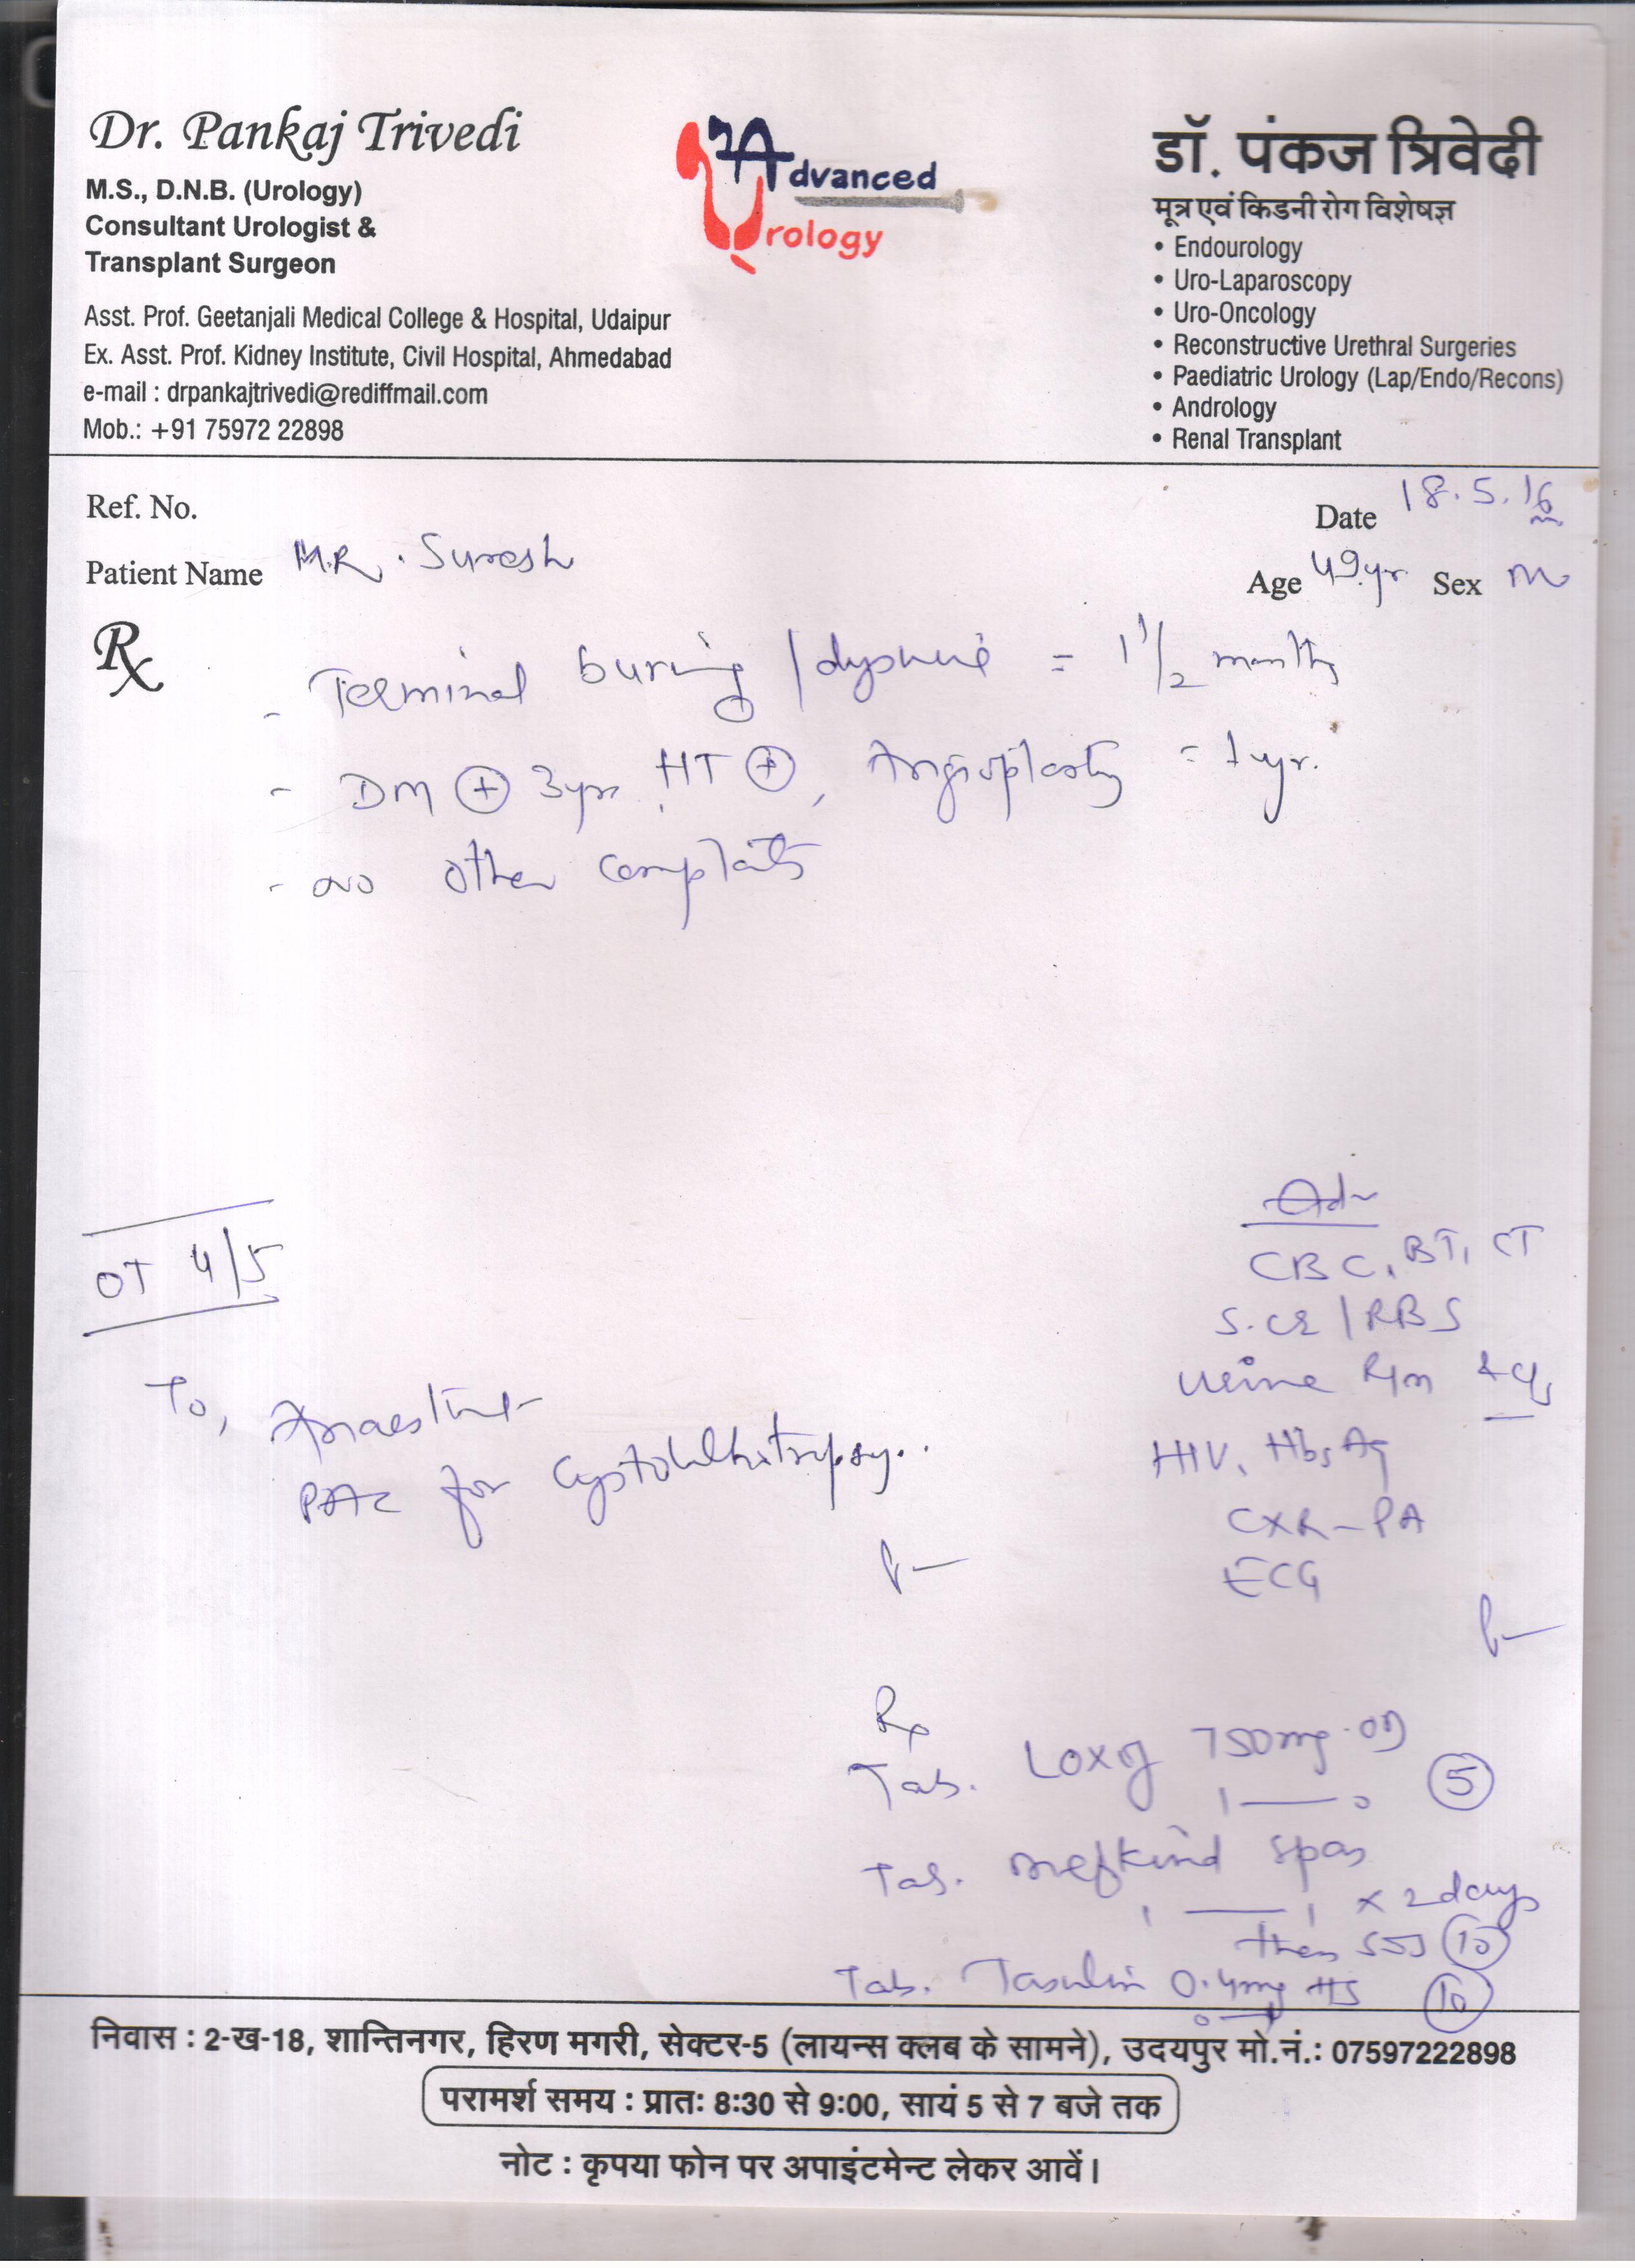 Dr. Pankaj Trivedi
M.S., D.N.B. (Urology)
Consultant Urologist &
Transplant Surgeon
Asst. Prof. Geetanjali Medical College & Hospital, Udaipur
Ex. Asst. Prof. Kidney Institute, Civil Hospital, Ahmedabad
e-mail : drpankajtrivedi@rediffmail.com
Mob.: +91 75972 22898
Advanced
Urology
डॉ. पंकज त्रिवेदी
मूत्र एवं किडनी रोग विशेषज्ञ
• Endourology
• Uro-Laparoscopy
• Uro-Oncology
• Reconstructive Urethral Surgeries
• Paediatric Urology (Lap/Endo/Recons)
• Andrology
• Renal Transplant
Ref. No.
Date 18.5.16
Patient Name M.R. Suresh
Age 49 yr. Sex M
Rx
- Terminal burning / = 1 1/2 months
- DM ⊕ 3yrs, HT ⊕, Angioplasty = 1 yr.
- no other complaits
Adv
CBC, BT, CT
S.Cr / RBS
Urine R/m & C/s
HIV, HbsAg
CXR-PA
ECG
OT 4/5
To,
PAC for
Rx
Tab. 750mg OD
1 — 0 (5)
Tab. Mefkind spas
1 — 1 x 2 days
then SOS (10)
Tab. 0.4mg HS (10)
निवास : 2-ख-18, शान्तिनगर, हिरण मगरी, सेक्टर-5 (लायन्स क्लब के सामने), उदयपुर मो.नं.: 07597222898
परामर्श समय : प्रातः 8:30 से 9:00, सायं 5 से 7 बजे तक
नोट : कृपया फोन पर अपाइंटमेन्ट लेकर आवें।